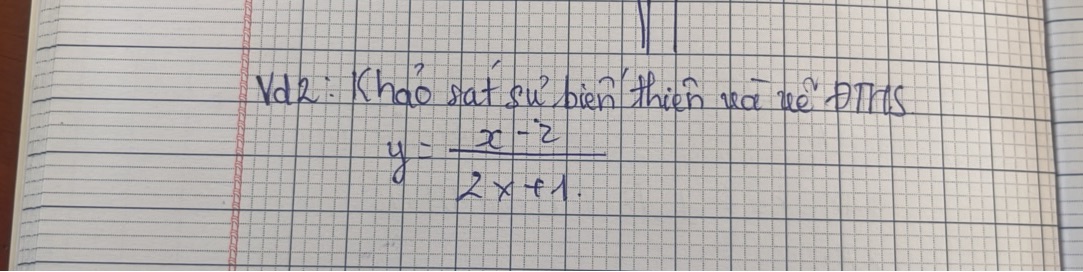 Vd2: Khảo sát sự biến thiên và vẽ ĐTHS
y = \frac{x-2}{2x+1}.